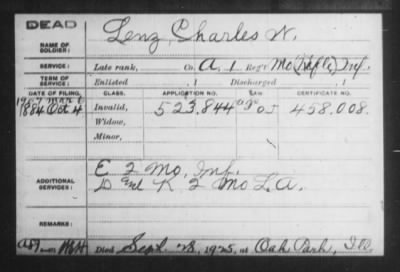 DEAD
NAME OF SOLDIER:
Lenz, Charles W.
SERVICE:
Late rank, Co. A, 1 Reg't Mo (Rifle) Inf.
TERM OF SERVICE:
Enlisted , 1 Discharged , 1
DATE OF FILING. CLASS. APPLICATION NO. LAW. CERTIFICATE NO.
1884 Oct 4 Invalid, 523.844 458.008.
Widow,
Minor,
ADDITIONAL SERVICES:
E 2 Mo. Inf.
K 2 Mo L.A.
REMARKS:
Died Sept. 28, 1925, at Oak Park, Ill.